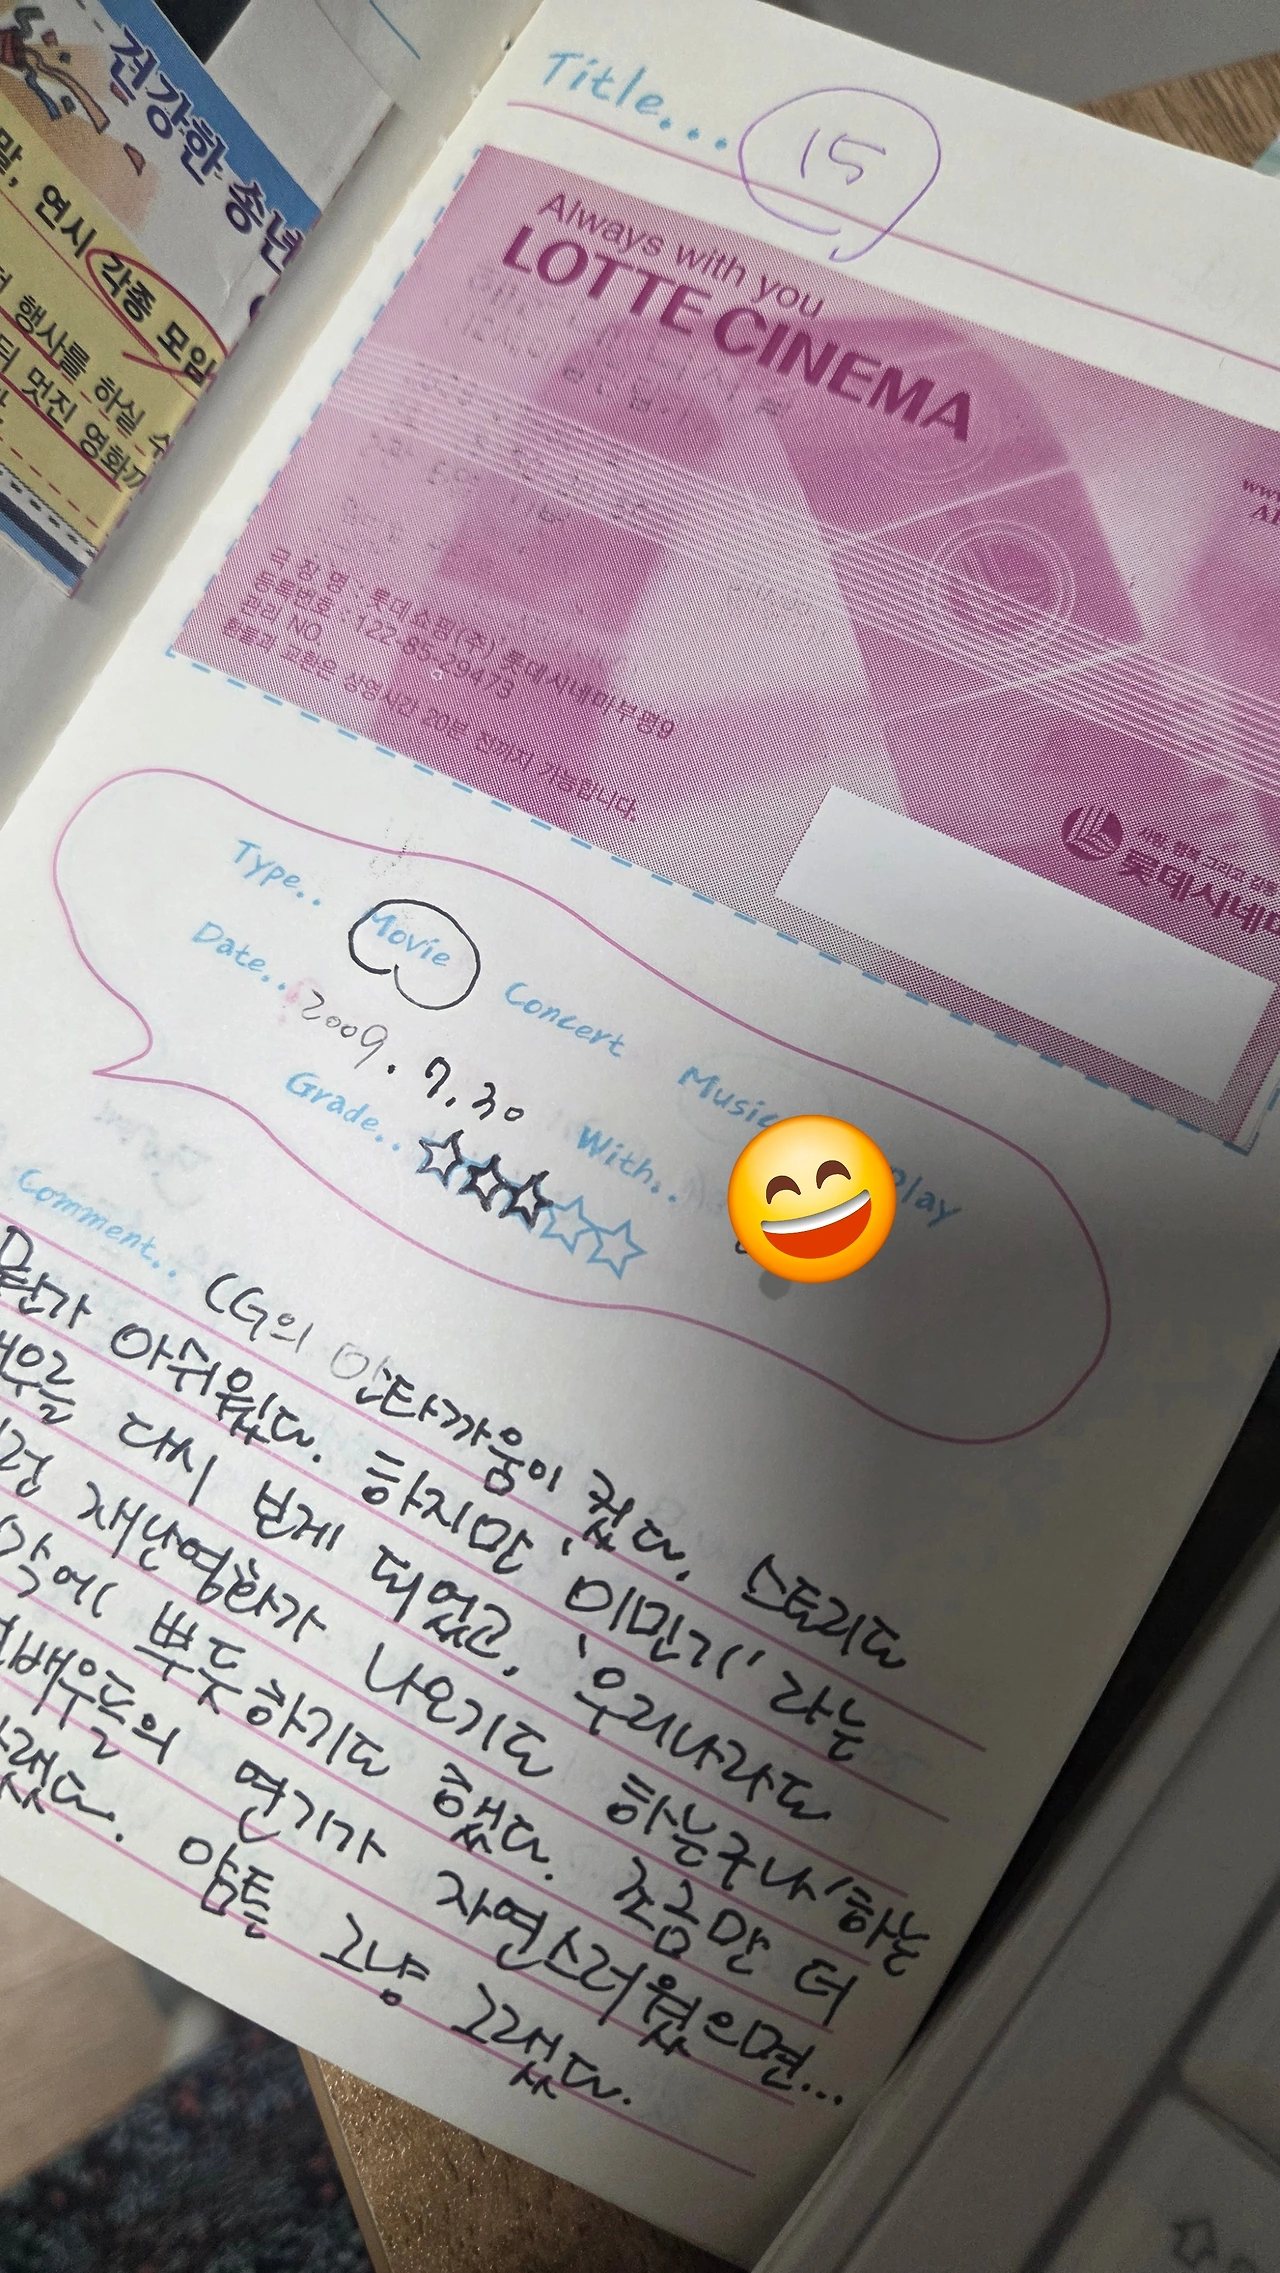 건강한 송년
말, 연시 각종 모임
행사를 하실 수
멋진 영화
Title...
15
Always with you
LOTTE CINEMA
극 장 명 : 롯데쇼핑(주) 롯데시네마부평9
등록번호 : 122-85-29473
관리 NO.
환불과 교환은 상영시간 20분 전까지 가능합니다.
롯데시네마
Type.. Movie Concert Music Play
Date.. 2009. 7. 30
With..
Grade..
Comment.. CG의 안타까움이 컸다. 스토리도
뭔가 아쉬웠다. 하지만 '이민기' 라는
배우를 다시 보게 되었고, '우리나라도
재난영화가 나오기도 하는구나' 하는
뿌듯하기도 했다. 조금만 더
연기가 자연스러웠으면...
암튼 그냥 그랬다.